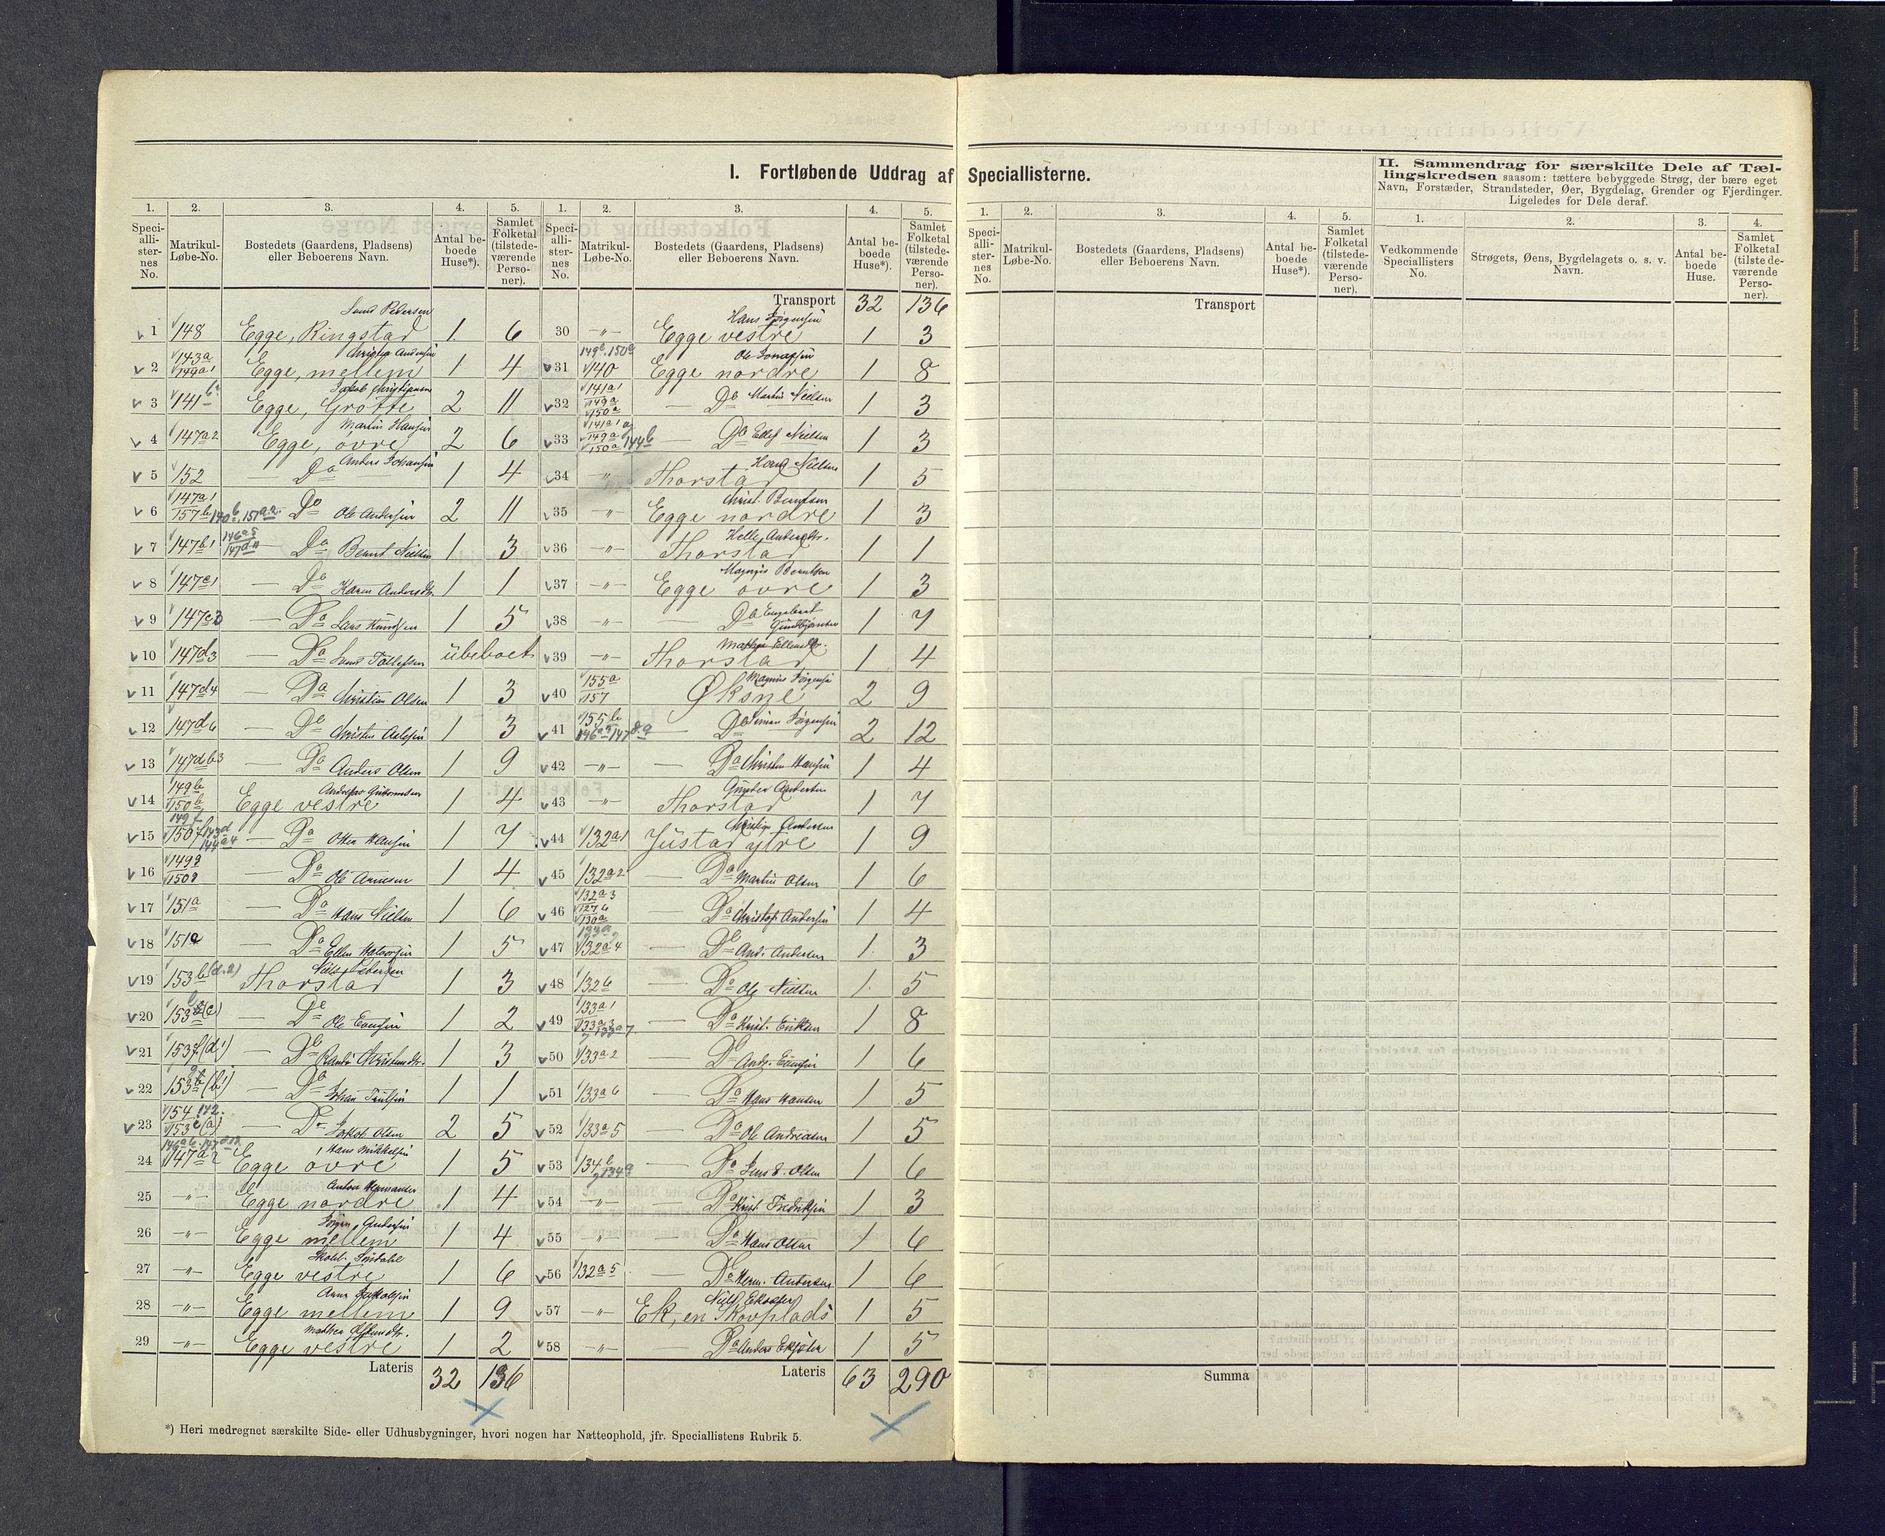 I. Fortløbende Uddrag af Speciallisterne.
II. Sammendrag for særskilte Dele af Tællingskredsen saasom: tættere bebyggede Strøg, der bære eget Navn, Forstæder, Strandsteder, Øer, Bygdelag, Grender og Fjerdinger. Ligeledes for Dele deraf.
1. 2. 3. 4. 5. 1. 2. 3. 4. 5. 1. 2. 3. 4. 5. 1. 2. 3. 4.
Speciallisternes No. Matrikul-Løbe-No. Bostedets (Gaardens, Pladsens) eller Beboerens Navn. Antal beboede Huse*). Samlet Folketal (tilstedeværende Personer).
Speciallisternes No. Matrikul-Løbe-No. Bostedets (Gaardens, Pladsens) eller Beboerens Navn. Antal beboede Huse*). Samlet Folketal (tilstedeværende Personer).
Speciallisternes No. Matrikul-Løbe-No. Bostedets (Gaardens, Pladsens) eller Beboerens Navn. Antal beboede Huse*). Samlet Folketal (tilstedeværende Personer).
Vedkommende Speciallisters No. Strøgets, Øens, Bygdelagets o. s. v. Navn. Antal beboede Huse. Samlet Folketal (tilstedeværende Personer).
1 148 Egge, Ringstad Pedersen 1 6
2 143a 144a1 Egge, mellem Andersen 1 4
3 141b Egge, Grotte Jakob Christiansen 2 11
4 147a2 Egge, øvre Martin Hansen 2 6
5 152 — Do Anders Johansen 1 4
6 147a1 157b Do Ole Andersen 2 11
7 147b1 — Do Bernt Nielsen 1 3
8 147c1 — Do Karen Andersdtr. 1 1
9 147c3 — Do Lars Knudsen 1 5
10 147d3 — Do Tollefsen ubeboet
11 147d4 — Do Christian Olsen 1 3
12 147d6 — Do 1 3
13 147db3 — Do Anders Olsen 1 9
14 149b 150b Egge vestre Andreas 1 4
15 149f 150f — Do Otter Hansen 1 7
16 149g 150g — Do Ole Arnesen 1 4
17 151a — Do Hans Nielsen 1 6
18 151a — Do Ellen Halvorsen 1 5
19 153b (d.2) Thorstad Niels Pedersen 1 3
20 153 (c) — Do Ole Evensen 1 2
21 153f (d1) — Do Christensdtr. 1 3
22 153 (b1) — Do Johan 1 1
23 154 153c (a) — Do Jakob Olsen 2 5
24 147a2 Egge øvre Hans Mikkelsen 1 5
25 —"— Egge nordre Anton Hermansen 1 4
26 —"— Egge mellem Jørgen Andersen 1 4
27 —"— Egge vestre 1 6
28 —"— Egge mellem Anne 1 9
29 —"— Egge vestre Mathea 1 2
Lateris 32 136
Transport 32 136
30 —"— Egge vestre Hans Jørgensen 1 3
31 149b.150a 140 Egge nordre Ole 1 8
32 141a1 149a 150a — Do Martin Nielsen 1 3
33 141a1a 149a 150a 144b — Do Ellef Nielsen 1 3
34 " Thorstad Hans Nielsen 1 5
35 —"— Egge nordre Christ. Berntsen 1 3
36 —"— Thorstad Helle Andersdtr. 1 1
37 —"— Egge øvre Magnus Berntsen 1 3
38 —"— — Do Engebret 1 7
39 —"— Thorstad 1 4
40 155a 157 Øksne Magnus Jørgensen 2 9
41 155b — Do Simen Jørgensen 2 12
42 —"— — Do Christen Hansen 1 4
43 —"— Thorstad 1 7
44 132a1 Justad ytre Andersen 1 9
45 132a2 — Do Martin Olsen 1 6
46 132a3 127b 130a — Do Christof. Andersen 1 4
47 132a4 — Do And. Andersen 1 3
48 132b — Do Ole Nielsen 1 5
49 133a1 133a3 133a7 — Do Krist. Eriksen 1 8
50 133a2 — Do Andr. Evensen 1 6
51 133a6 — Do Hans Hansen 1 5
52 133a5 — Do Ole Andreasen 1 5
53 134b 134a — Do Jens E. Olsen 1 6
54 —"— — Do Krist. Fredriksen 1 3
55 " — Do Hans Olsen 1 6
56 132a5 — Do Herm. Andersen 1 6
57 —"— Ek, en Skovplads 1 5
58 —"— Do Anders 1 5
Lateris 63 290
Transport
Summa
*) Heri medregnet særskilte Side- eller Udhusbygninger, hvori nogen har Natteophold, jfr. Speciallistens Rubrik 5.